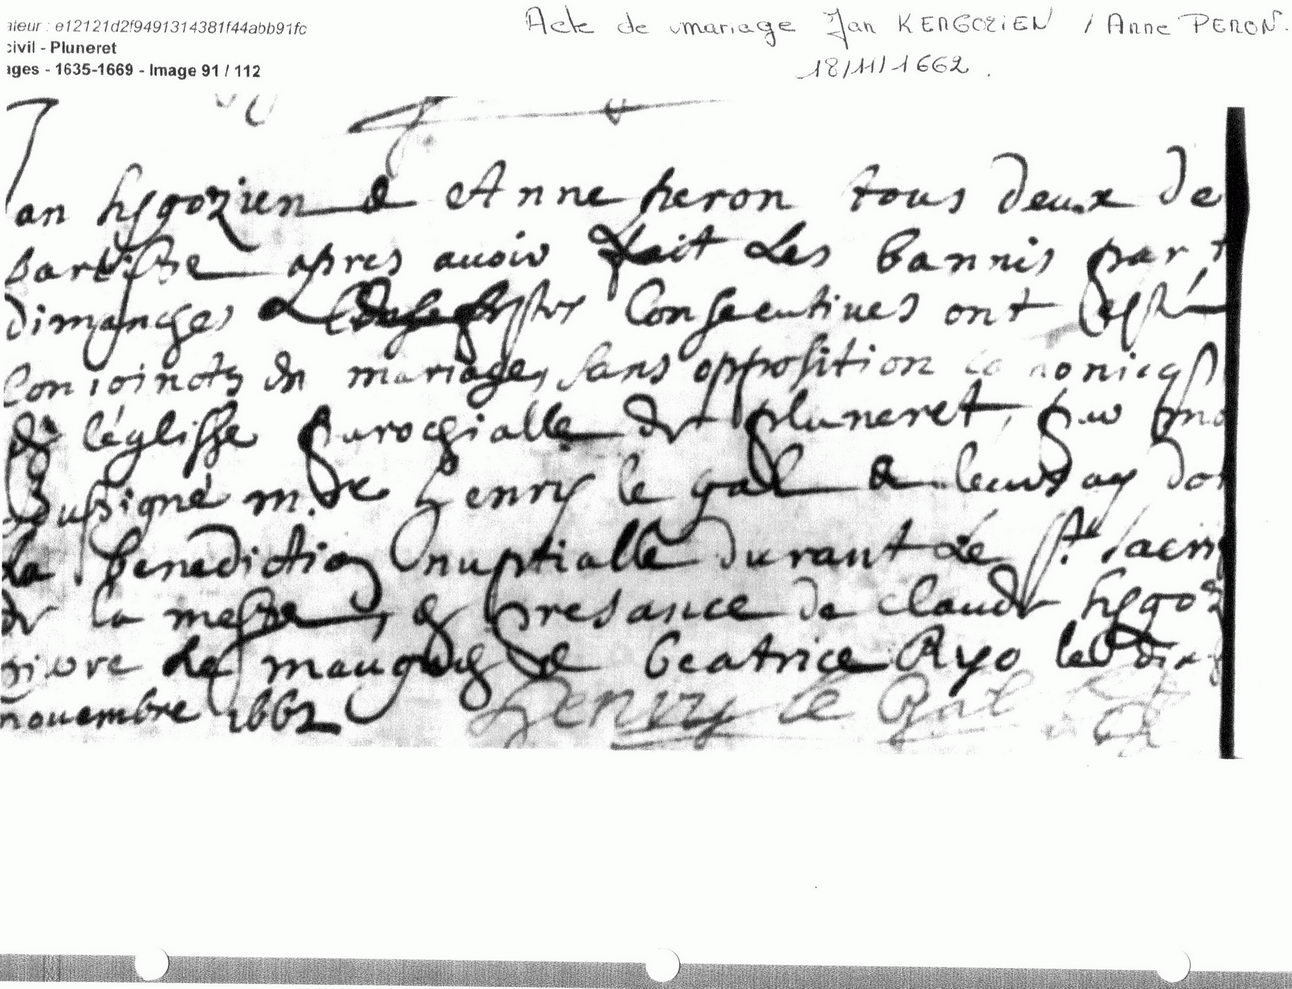 aleur : e12121d2f9491314381f44abb91fc
civil - Pluneret
ages - 1635-1669 - Image 91 / 112
Acte de mariage Jan KERGOZIEN / Anne PERON.
18/11/1662.
Jan kgozien & Anne peron tous deux de
apres auoir fait les bannis par
dimanches & consecutiues ont esté
conioincts en mariage, sans opposition
de léglisse parochialle de pluneret, par
soussigné m. henry le gal &
la benediction nuptialle durant le st sacri
de la messe, & presance de claude kgoz
de & beatrice Ryo le
nouembre 1662 henry le Gal